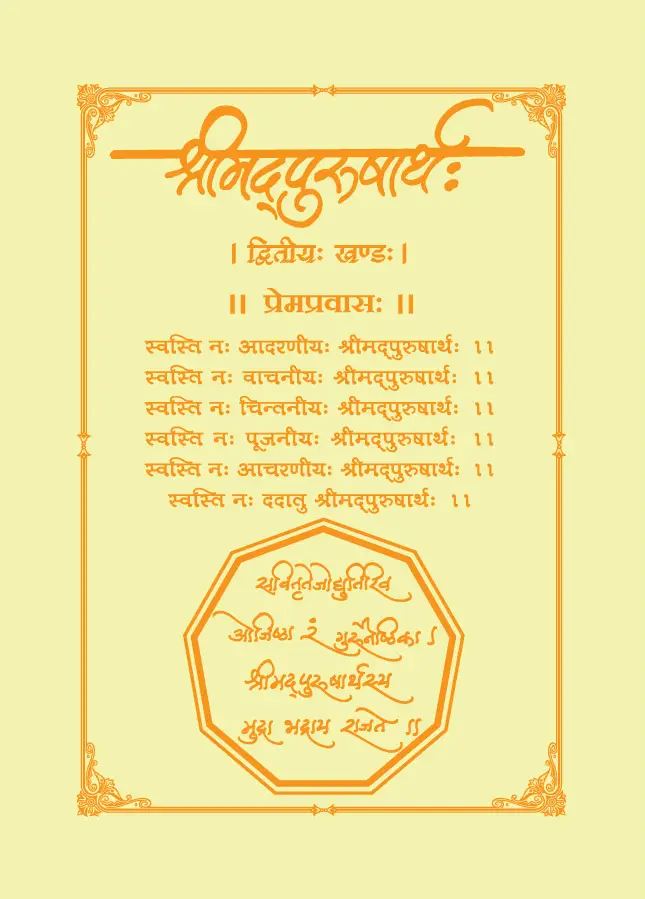 श्रीमद्पुरुषार्थः
। द्वितीयः खण्डः।
।। प्रेमप्रवासः ।।
स्वस्ति नः आदरणीयः श्रीमद्पुरुषार्थः ।।
स्वस्ति नः वाचनीयः श्रीमद्पुरुषार्थः ।।
स्वस्ति नः चिन्तनीयः श्रीमद्पुरुषार्थः ।।
स्वस्ति नः पूजनीयः श्रीमद्पुरुषार्थः ।।
स्वस्ति नः आचरणीयः श्रीमद्पुरुषार्थः ।।
स्वस्ति नः ददातु श्रीमद्पुरुषार्थः ।।
सवितृतेजोद्युतिरिव
ओजिष्ठा रं गुरुनैष्ठिका ।
श्रीमद्पुरुषार्थस्य
मुद्रा भद्राय राजते ।।